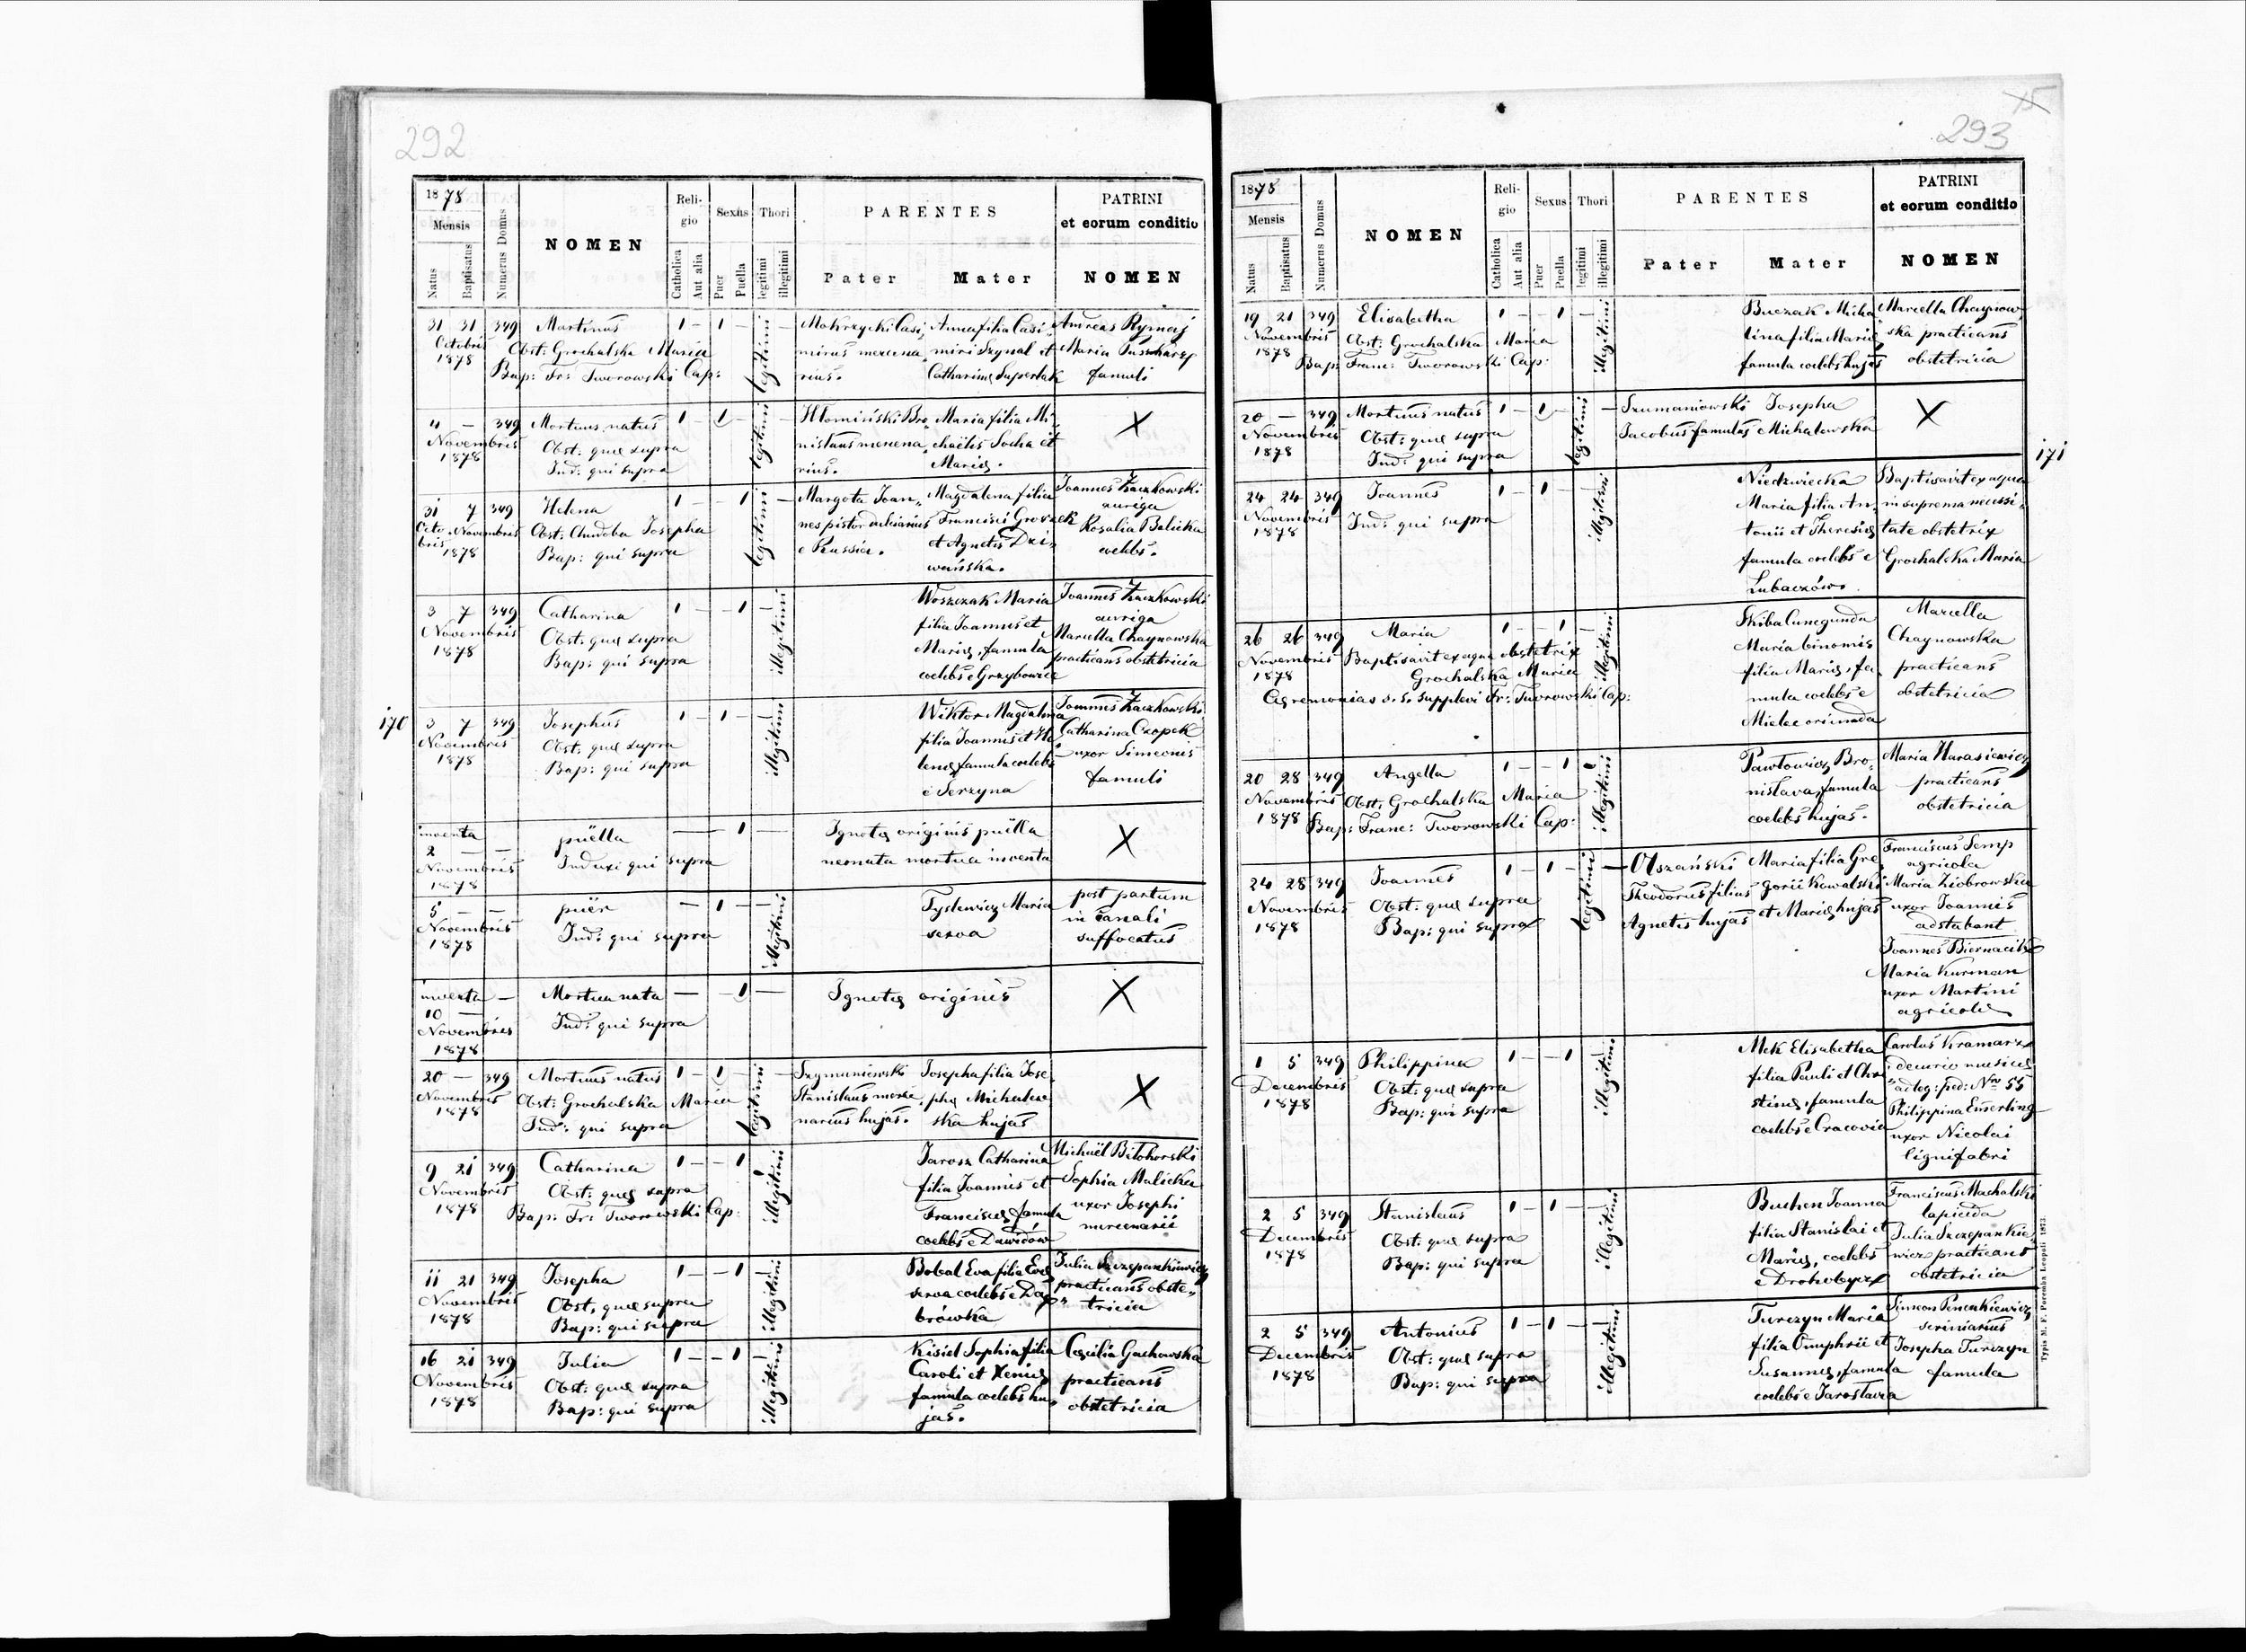 292
1878
Mensis
Natus
Baptisatus
Numerus Domus
NOMEN
Religio
Catholica
Aut alia
Sexus
Puer
Puella
Thori
legitimi
illegitimi
PARENTES
Pater
Mater
PATRINI
et eorum conditio
NOMEN
31 31 349 Martinus 1 – 1 – legitimi – Mokrzycki Casi, Anna filia Casi, Andreas Rymarz
Octobris Obst: Grochalska Maria mirus mercena, miri Szynal et Maria
1878 Bap: Fr: Tworowski Cap: rius. Catharinę Superlak famuli
4 – 349 Mortuus natus 1 – 1 – legitimi Bro, Maria filia Mi, X
Novembris Obst: quę supra nislaus mercena, chaelis Socha et
1878 Ind: qui supra rius. Marię.
31 7 349 Helena 1 – – 1 legitimi – Margota Joan, Magdalena filia Joannes Kaczkowski
Octo, Novembris Obst: Chudoba Josepha nes pistor dulciarius Francisci Grossek auriga
bris 1878 Bap: qui supra e Russia. et Agnetis Dzi, Rosalia Balicka
wańska. coelebs.
3 7 349 Catharina 1 – – 1 illegitimi Woszczak Maria Joannes Kaczkowski
Novembris Obst: quę supra filia Joannis et auriga
1878 Bap: qui supra Marię, famula Marcella Chaynowska
coelebs e Grzybowice practicans obstetricia
170 3 7 349 Josephus 1 – 1 – illegitimi Wiktor Magdalena Joannes Kaczkowski
Novembris Obst: quę supra filia Joannis et He Catharina Czopek
1878 Bap: qui supra lenę famula coelebs uxor Simeonis
e Serzyna famuli
inventa puella — 1 — Ignotę originis puella X
2 — — Induxi qui supra neonata mortua inventa
Novembris
1878
5 — — puer — 1 – illegitimi Tyslewicz Maria post partum
Novembris Ind: qui supra serva in canali
1878 suffocatus
inventa — Mortua nata — – 1 — Ignotę originis X
10 — Ind: qui supra
Novembris
1878
20 — 349 Mortuus natus 1 – 1 – legitimi – Szymaniowski Josepha filia Jose, X
Novembris Obst: Grochalska Maria Stanislaus merce, phę Michalew
1878 Ind: qui supra narius hujas. ska hujas
9 21 349 Catharina 1 – – 1 illegitimi Jarosz Catharina Michaël Bilohorski
Novembris Obst: quę supra filia Joannis et Sophia Malicka
1878 Bap: Fr: Tworowski Cap: Franciscę, famula uxor Josephi
coelebs e Dawidów mercenarii
11 21 349 Josepha 1 – – 1 illegitimi Bobal Eva filia Evę Julia Szczepankiewicz
Novembris Obst, quę supra serva coelebs e Dą practicans obste,
1878 Bap: qui supra brówka tricia
16 21 349 Julia 1 – – 1 illegitimi Kisiel Sophia filia Cęcilia Gachowska
Novembris Obst: quę supra Caroli et Xenię practicans
1878 Bap: qui supra famula coelebs hu, obstetricia
jas.
293
1878
Mensis
Natus
Baptisatus
Numerus Domus
NOMEN
Religio
Catholica
Aut alia
Sexus
Puer
Puella
Thori
legitimi
illegitimi
PARENTES
Pater
Mater
PATRINI
et eorum conditio
NOMEN
19 21 349 Elisabetha 1 – – 1 illegitimi Buczak Micha Marcella Chaynow,
Novembris Obst: Grochalska Maria lina filia Marię ska practicans
1878 Bap: Franc: Tworowski Cap: famula coelebs hujas obstetricia
20 — 349 Mortuus natus 1 – 1 – legitimi – Szumaniowski Josepha X
Novembris Obst: quę supra Jacobus famulus Michalewska
1878 Ind: qui supra
171
24 24 349 Joannes 1 – 1 – illegitimi Niedzwiecka Baptisavit ex aqua
Novembris Ind: qui supra Maria filia An, in suprema necessi,
1878 tonii et Theresię tate obstetrix
famula coelebs e Grochalska Maria
Lubaczów.
26 26 349 Maria 1 – – 1 illegitimi Skiba Cunegunda Marcella
Novembris Baptisavit ex aqua obstetrix Maria binomis Chaynowska
1878 Grochalska Maria filia Marię, fa, practicans
Cęremonias s. s. supplevi Fr: Tworowski Cap: mula coelebs e obstetricia
Mielec oriunda
20 28 349 Angella 1 – – 1 illegitimi Pawłowicz Bro, Maria Harasiewicz
Novembris Obst: Grochalska Maria nislava, famula practicans
1878 Bap: Franc: Tworowski Cap: coelebs hujas. obstetricia
24 28 349 Joannes 1 – 1 – legitimi – Olszański Maria filia Gre Franciscus Semp
Novembris Obst: quę supra Theodorus filius gorii Kowalski agricola
1878 Bap: qui supra Agnetis hujas et Marię hujas Maria Ziobrowska
uxor Joannis
adstabant
Joannes Biernacik
Maria Kurman
uxor Martini
agricolę
1 5 349 Philippina 1 – – 1 illegitimi Mek Elisabetha Carolus Kramarz
Decembris Obst: quę supra filia Pauli et Chri decurio musices
1878 Bap: qui supra stinę, famula ad leg: ped: Nro 55
coelebs e Cracovia Philippina Emerling
uxor Nicolai
lignifabri
2 5 349 Stanislaus 1 – 1 – illegitimi Buchen Joanna Franciscus Machalski
Decembris Obst: quę supra filia Stanislai et lapicida
1878 Bap: qui supra Marię, coelebs Julia Szczepankie,
e Drohobycz wicz practicans
obstetricia
2 5 349 Antonius 1 – 1 – illegitimi Turczyn Maria Simeon Penenkiewicz
Decembris Obst: quę supra filia Onuphrii et scriniarius
1878 Bap: qui supra Susannę, famula Josepha Turczyn
coelebs e Jarosławia famula
Typis M. F. Poremba Leopoli 1873.